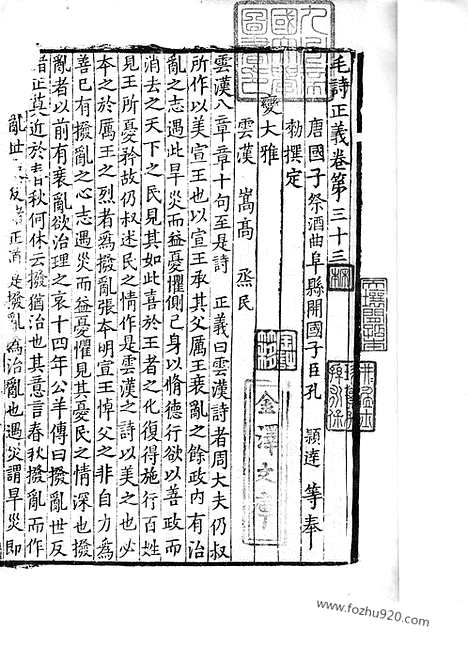 毛詩正義卷第三十三
唐國子祭酒曲阜縣開國子臣孔 穎達 等奉
勑撰定
變大雅
雲漢 嵩高 烝民
雲漢八章章十句至是詩 正義曰雲漢詩者周大夫仍叔
所作以美宣王也以宣王承其父厲王衰亂之餘政內有治
亂之志遇此旱災而益憂懼側己身以脩德行欲以善政而
消去之天下之民見其如此喜於王者之化復得施行百姓
見王所憂矜故仍叔述民之情作是雲漢之詩以美之也必
本之於厲王之烈者為撥亂張本明宣王悼父之非自力為
善已有撥亂之心志遇災而益憂懼見其憂民之情深也撥
亂者以前有衰亂欲治理之哀十四年公羊傳曰撥亂世反
諸正莫近於春秋何休云撥猶治也其意言春秋撥亂而作
亂世反諸正酒是撥亂為治亂也遇父謂旱災即
金澤文庫
www.fozhu920.com